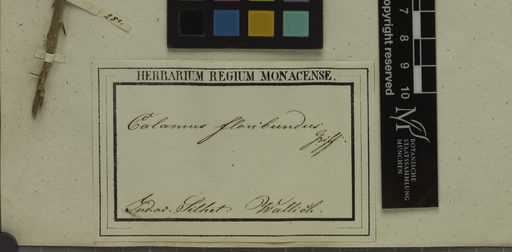 281.
HERBARIUM REGIUM MONACENSE.
Calamus floribundus
Griff.
Ind. or. Silhet: Wallich.
copyright reserved
7
8
9
10
BOTANISCHE
STAATSSAMMLUNG
MÜNCHEN